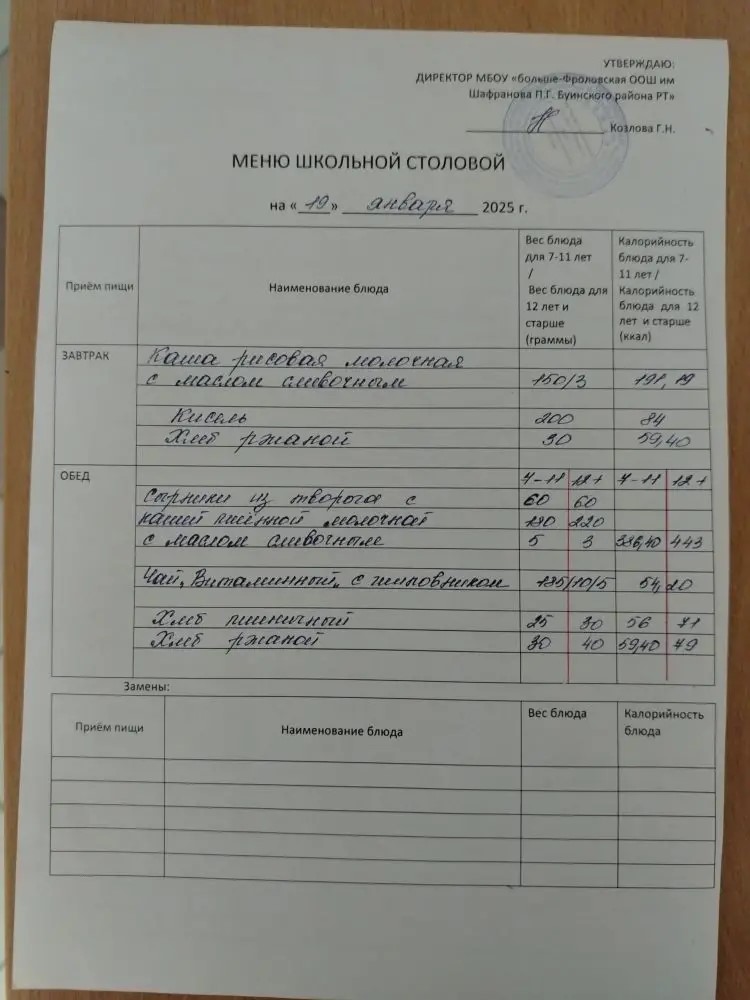 УТВЕРЖДАЮ:
ДИРЕКТОР МБОУ «больше-Фроловская ООШ им
Шафранова П.Г. Буинского района РТ»
Козлова Г.Н.
МЕНЮ ШКОЛЬНОЙ СТОЛОВОЙ
на «19» января 2025 г.
Приём пищи
Наименование блюда
Вес блюда
для 7-11 лет
/
Вес блюда для
12 лет и
старше
(граммы)
Калорийность
блюда для 7-
11 лет /
Калорийность
блюда для 12
лет и старше
(ккал)
ЗАВТРАК
Каша рисовая молочная
с маслом сливочным 150/3 191,19
Кисель 200 84
Хлеб ржаной 30 59,40
ОБЕД 7-11 12+ 7-11 12+
Сырники из творога с 60 60
кашей пшённой молочной 180 220
с маслом сливочным 5 3 386,40 443
Чай "Витаминный" с шиповником 185/10/5 54,20
Хлеб пшеничный 25 30 56 71
Хлеб ржаной 30 40 59,40 79
Замены:
Приём пищи
Наименование блюда
Вес блюда
Калорийность
блюда